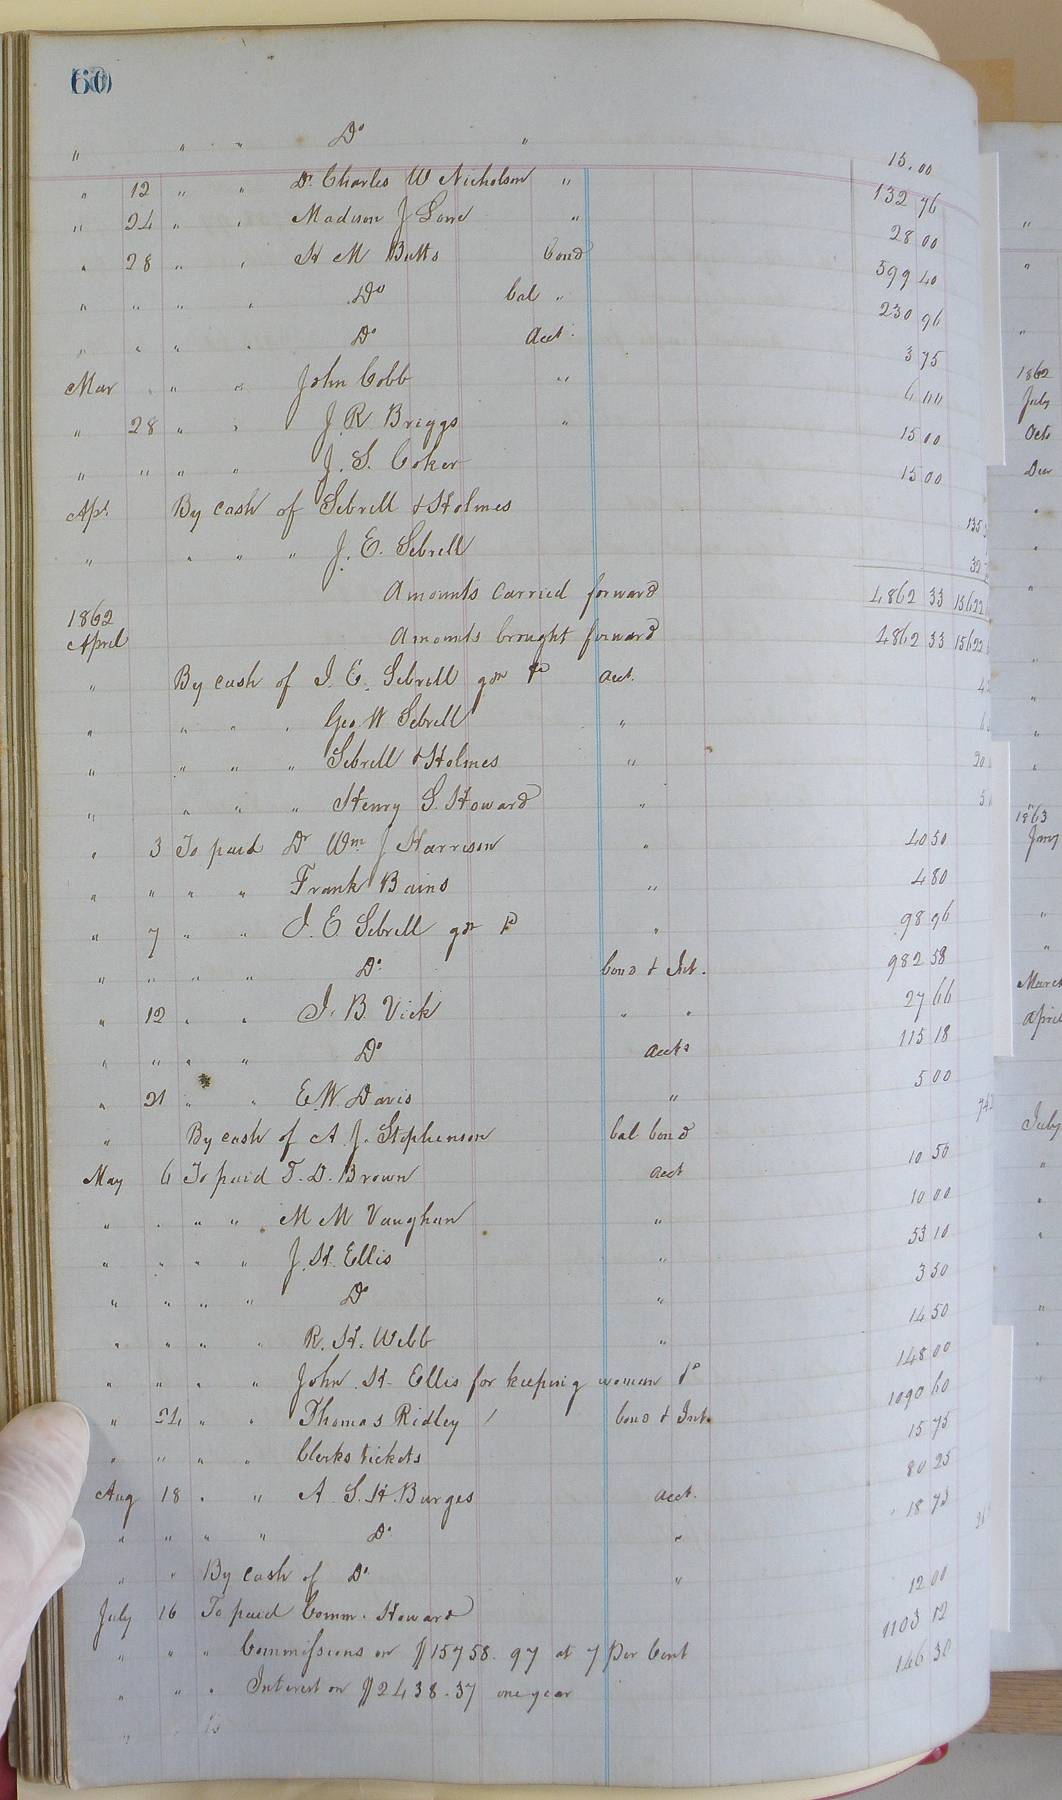 60
" " " Do " 15.00
" 12 " " Dr. Charles W Nicholson " 132 76
" 24 " " Madison J Lane " 28 00
" 28 " " H M Butts Bond 599 40
" " " " Do Bal " 230 96
" " " " Do Acct. 3 75
Mar " " John Cobb " 6 00
" 28 " " J. R Briggs " 15 00
" " " " J. S. Coker 15 00
Apl. By cash of Sebrell & Holmes 135
" " " " J. E. Sebrell 32
Amounts carried forward 4862 33 15622
1862
April Amounts brought forward 4862 33 15622
" By cash of J. E. Sebrell gdn acct. 4
" " " " Geo. W Sebrell "
" " " " Sebrell & Holmes " 20
" " " " Henry S. Howard " 5
" 3 To paid Dr Wm J Harrison " 40 50
" " " " Frank Bains " 4 80
" 7 " " J. E. Sebrell gdn " 98 96
" " " " Do Bond & Int. 982 58
" 12 " " J. B. Vick " " 27 66
" " " " Do accts 115 18
" 21 " " E. W. Davis " 5 00
" By cash of A. J. Stephenson bal bond 742
May 6 To paid T. D. Brown acct 10 50
" " " " M M Vaughan " 10 00
" " " " J. H. Ellis " 53 10
" " " " Do " 3 50
" " " " R. H. Webb " 14 50
" " " " John. H. Ellis for keeping woman 148 00
" 24 " " Thomas Ridley Bond & Int. 1090 60
" " " " Clerks tickets 15 75
Aug 18 " " A. S. H. Burges acct. 80 25
" " " " Do " 18 73
" " By cash of Do "
July 16 To paid Comm. Howard 12 00
" " " Commissions on $15758.97 at 7 Per Cent 1103 12
" " " Interest on $2438.37 one year 146 30
" "
1862
July
Octo
Dec
1863
Jany
March
April
July